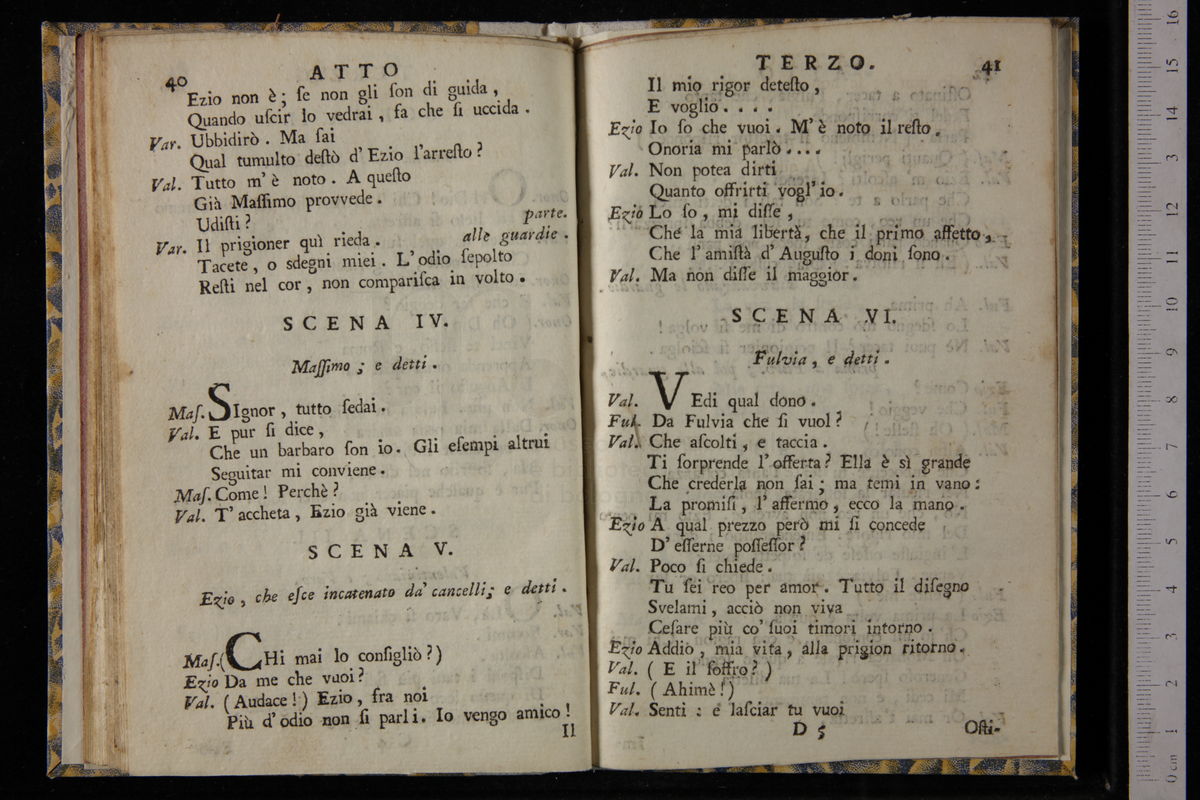 40 ATTO
Ezio non è; ſe non gli ſon di guida,
Quando uſcir lo vedrai, fa che ſi uccida.
Var. Ubbidirò. Ma ſai
Qual tumulto deſtò d'Ezio l'arreſto?
Val. Tutto m'è noto. A queſto
Già Maſſimo provvede.
Udiſti? parte.
Var. Il prigioner quì rieda. alle guardie.
Tacete, o sdegni miei. L'odio ſepolto
Reſti nel cor, non compariſca in volto.
SCENA IV.
Maſſimo; e detti.
Maſ. SIgnor, tutto ſedai.
Val. E pur ſi dice,
Che un barbaro ſon io. Gli eſempi altrui
Seguitar mi conviene.
Maſ. Come! Perchè?
Val. T'accheta, Ezio già viene.
SCENA V.
Ezio, che eſce incatenato da' cancelli; e detti.
Maſ. (CHi mai lo conſigliò?)
Ezio Da me che vuoi?
Val. (Audace!) Ezio, fra noi
Più d'odio non ſi parli. Io vengo amico!
Il
TERZO. 41
Il mio rigor deteſto,
E voglio....
Ezio Io ſo che vuoi. M'è noto il reſto.
Onoria mi parlò....
Val. Non potea dirti
Quanto offrirti vogl'io.
Ezio Lo ſo, mi diſſe,
Che la mia libertà, che il primo affetto,
Che l'amiſtà d'Auguſto i doni ſono.
Val. Ma non diſſe il maggior.
SCENA VI.
Fulvia, e detti.
Val. VEdi qual dono.
Ful. Da Fulvia che ſi vuol?
Val. Che aſcolti, e taccia.
Ti ſorprende l'offerta? Ella è sì grande
Che crederla non ſai; ma temi in vano:
La promiſi, l'affermo, ecco la mano.
Ezio A qual prezzo però mi ſi concede
D'eſſerne poſſeſſor?
Val. Poco ſi chiede.
Tu ſei reo per amor. Tutto il diſegno
Svelami, acciò non viva
Ceſare più co' ſuoi timori intorno.
Ezio Addio, mia vita, alla prigion ritorno.
Val. (E il ſoffro?)
Ful. (Ahimè!)
Val. Senti: e laſciar tu vuoi
D 5 Oſti-